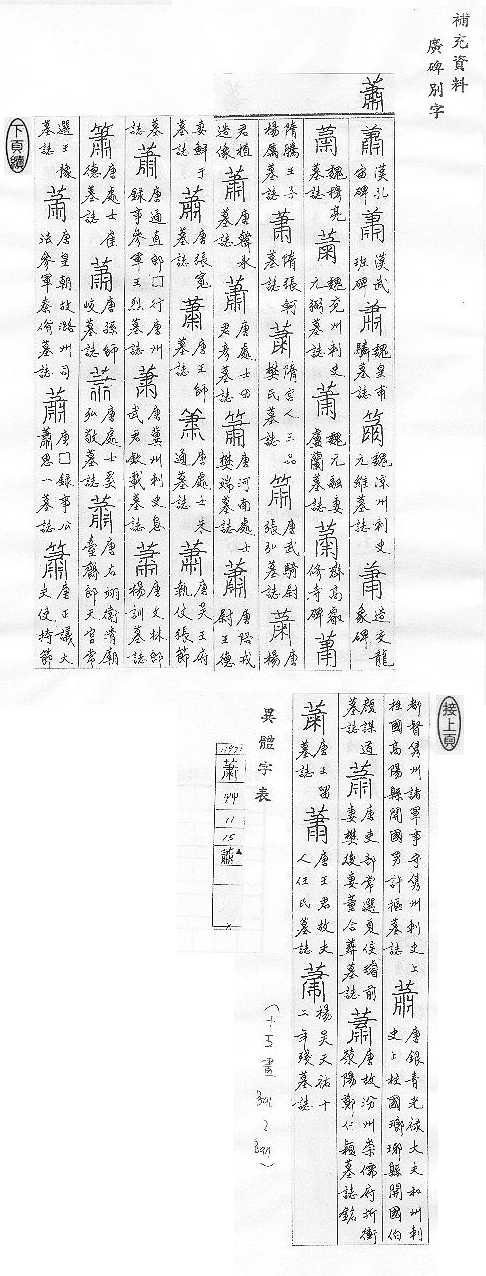 補充資料
廣碑別字
蕭
蕭 漢孔宙碑 蕭 漢武班碑 蕭 魏皇甫驎墓誌 簫 魏涼州刺史元維墓誌 蕭 造交龍象碑
蕭 魏穆亮墓誌 蕭 魏兗州刺史元弼墓誌 蕭 魏元敏妻盧蘭墓誌 蕭 齊高叡修寺碑 蕭
隋騰王子楊厲墓誌 蕭 隋張軻墓誌 蕭 隋宮人三品樊氏墓誌 簫 唐武騎尉張弘墓誌 蕭 唐楊
君植造像 蕭 唐韓永墓誌 蕭 唐處士田君彥墓誌 簫 唐河南處士樊端墓誌 蕭 唐陪戎尉王德
妻鮮于墓誌 蕭 唐張寬墓誌 蕭 唐王師墓誌 簫 唐處士朱通墓誌 蕭 唐吳王府執仗張節
墓誌 蕭 唐通直郎□行唐州錄事參軍王烈墓誌 蕭 唐冀州刺史息武君欽載墓誌 蕭 唐文林郎楊訓墓誌
簫 唐處士崔德墓誌 蕭 唐孫師岐墓誌 蕭 唐處士奚弘敬墓誌 蕭 唐右翊衛清廟臺齋郎天官常
選王懷墓誌 蕭 唐皇朝故潞州司法參軍秦佾墓誌 蕭 唐□錄事公蕭思一墓誌 簫 唐正議大夫使持節
下頁續
接上頁
都督儁州諸軍事守儁州刺史上柱國高陽縣開國男許樞墓誌 蕭 唐銀青光祿大夫和州刺史上柱國瑯琊縣開國伯
顏謀道墓誌 蕭 唐吏部常選夏侯璿前妻樊後妻董合葬墓誌 蕭 唐故汾州崇儒府折衝滎陽鄭仁穎墓誌銘
蕭 唐王留墓誌 蕭 唐王君故夫人任氏墓誌 蕭 楊吳天祐十二年殘墓誌
異體字表
蕭
艸
11
15
蕭